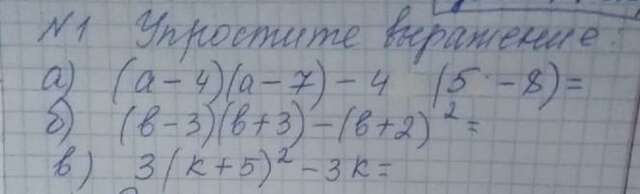 N1 Упростите выражение:
а) (a-4)(a-7)-4 (5 -8)=
б) (b-3)(b+3)-(b+2)²=
в) 3(k+5)²-3k=